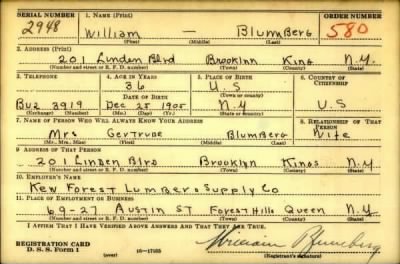 SERIAL NUMBER 1. NAME (Print) ORDER NUMBER
2948 William — Blumberg 580
(First) (Middle) (Last)
2. ADDRESS (Print)
201 Linden Blvd Brooklnn King N.Y.
(Number and street or R. F. D. number) (Town) (County) (State)
3. TELEPHONE 4. AGE IN YEARS 5. PLACE OF BIRTH 6. COUNTRY OF CITIZENSHIP
36 U.S
DATE OF BIRTH (Town or county)
BU2 3919 Dec 25 1905 N.Y U.S
(Exchange) (Number) (Mo.) (Day) (Yr.) (State or country)
7. NAME OF PERSON WHO WILL ALWAYS KNOW YOUR ADDRESS 8. RELATIONSHIP OF THAT PERSON
Mrs Gertrude Blumberg Wife
(Mr., Mrs., Miss) (First) (Middle) (Last)
9. ADDRESS OF THAT PERSON
201 Linden Blrd Brooklyn Kings N.Y
(Number and street or R. F. D. number) (Town) (County) (State)
10. EMPLOYER'S NAME
Kew Forest Lumber & Supply Co
11. PLACE OF EMPLOYMENT OR BUSINESS
69-27 Austin ST Forest Hills Queen N.Y
(Number and street or R. F. D. number) (Town) (County) (State)
I AFFIRM THAT I HAVE VERIFIED ABOVE ANSWERS AND THAT THEY ARE TRUE.
REGISTRATION CARD
D. S. S. Form 1 (over) 16-17105 William Blumberg
(Registrant's signature)